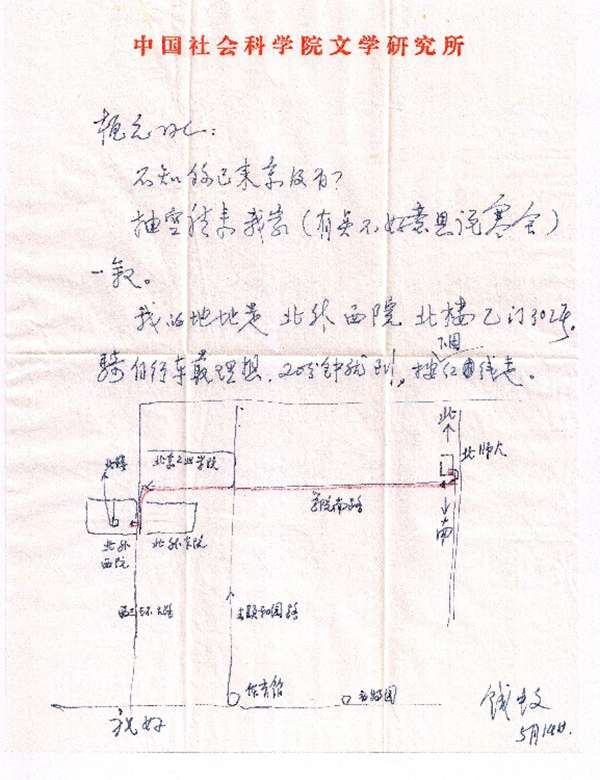 中国社会科学院文学研究所
不知你已来京没有?
抽空能来我家(有点不好意思说寒舍)
一叙。
我的地址是 北外 西院 北楼乙门302号。
下图
骑自行车最理想,20分钟就到,按红线走。
北
北师大
北京工业学院
北楼
学院南路
南
北外
西院
北外东院
西三环大路
去颐和园路
体育馆
动物园
祝好
5月14日